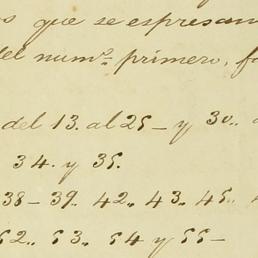 os que se espresan
del num.º primero, f
del 13. al 25 – y 30..
34. y 35.
38 – 39. 42.. 43. 45..
52.. 53.. 54 y 55 –